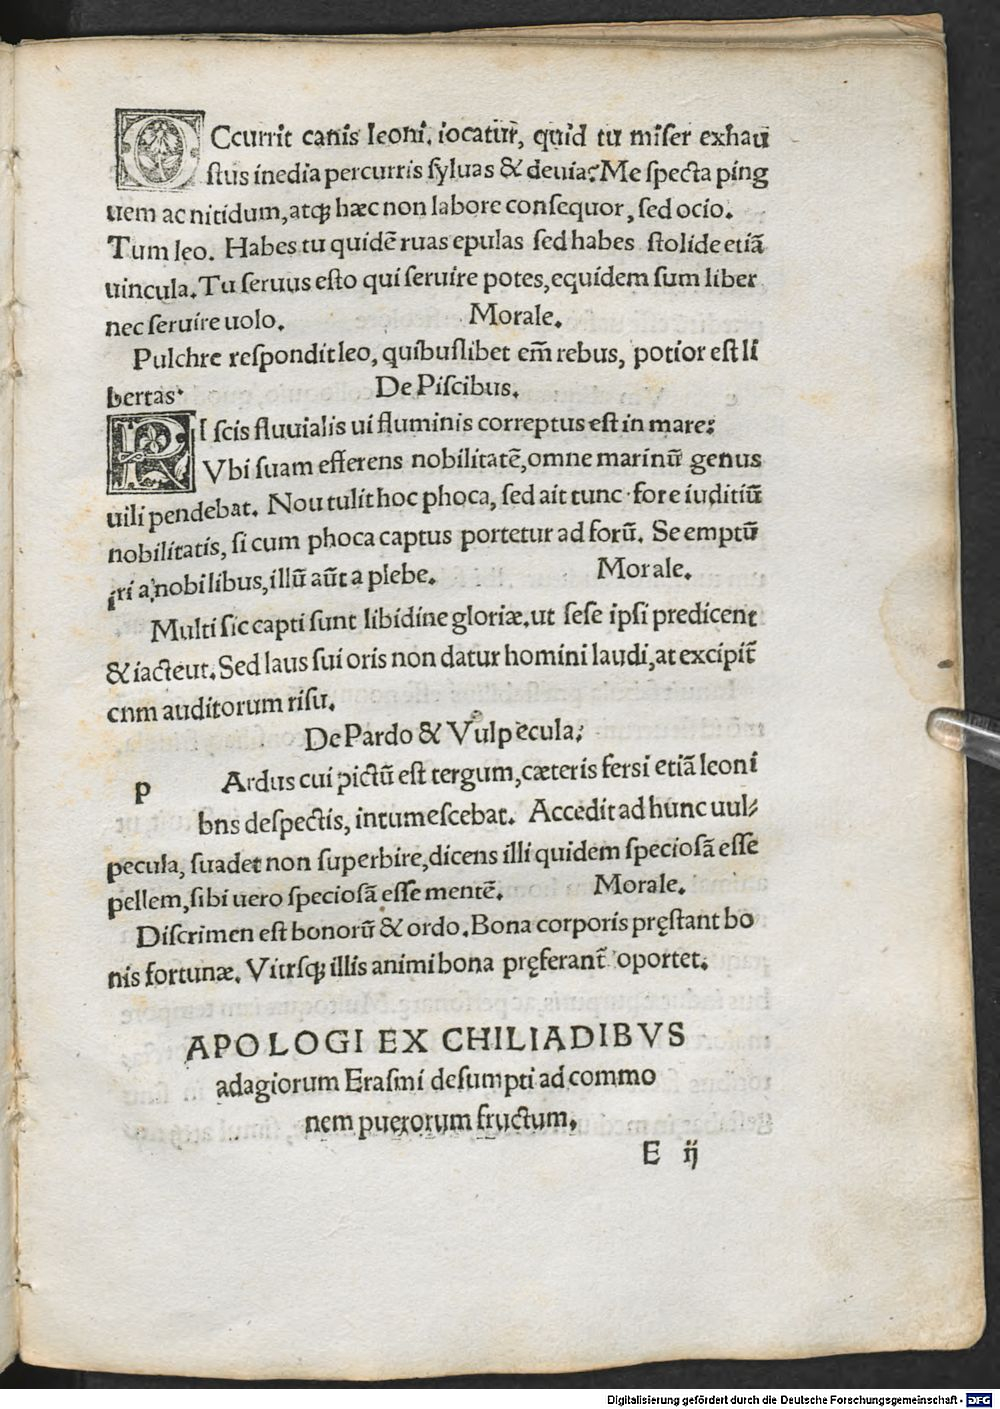 OCcurrit canis leoni. iocatur, quid tu miser exhau
stus inedia percurris syluas & deuia? Me specta ping
uem ac nitidum, atqꝫ hæc non labore consequor, sed ocio.
Tum leo. Habes tu quidē ruas epulas sed habes stolide etiā
uincula. Tu seruus esto qui seruire potes, equidem sum liber
nec seruire uolo. Morale.
Pulchre respondit leo, quibuslibet em̄ rebus, potior est li
bertas. De Piscibus.
RI scis fluuialis ui fluminis correptus est in mare:
Vbi suam efferens nobilitatē, omne marinū genus
uili pendebat. Nou tulit hoc phoca, sed ait tunc fore iuditiū
nobilitatis, si cum phoca captus portetur ad forū. Se emptū
iri a nobilibus, illū aūt a plebe. Morale.
Multi sic capti sunt libidine gloriæ. ut sese ipsi predicent
& iacteut. Sed laus sui oris non datur homini laudi, at excipit̄
cnm auditorum risu.
De Pardo & Vulpecula:
p Ardus cui pictū est tergum, cæteris fersi etiā leoni
bns despectis, intumescebat. Accedit ad hunc uul⸗
pecula, suadet non superbire, dicens illi quidem speciosā esse
pellem, sibi uero speciosā esse mentē. Morale.
Discrimen est bonorū & ordo. Bona corporis pręstant bo
nis fortunæ. Vtrsqꝫ illis animi bona pręferant̄ oportet.
APOLOGI EX CHILIADIBVS
adagiorum Erasmi desumpti ad commo
nem puerorum fructum.
E ij
Digitalisierung gefördert durch die Deutsche Forschungsgemeinschaft - DFG